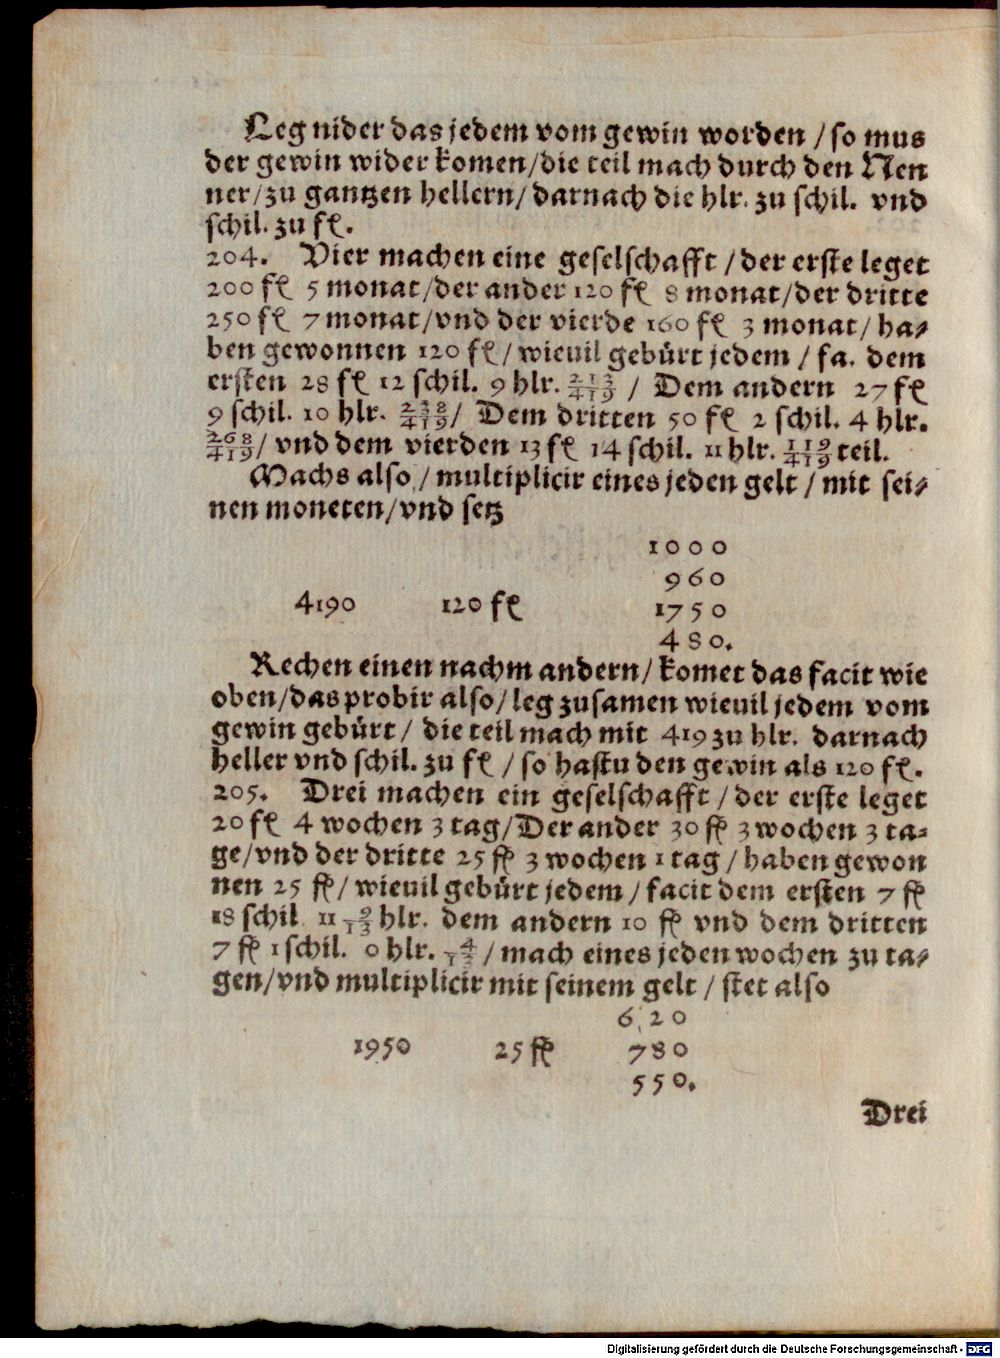 Leg nider das jedem vom gewin worden / so mus
der gewin wider komen/die teil mach durch den Nen
ner/zu gantzen hellern/ darnach die hlr. zu schil. vnd
schil. zu fl.
204. Vier machen eine geselschafft / der erste leget
200 fl 5 monat/der ander 120 fl 8 monat/der dritte
250 fl 7 monat/vnd der vierde 160 fl 3 monat/ ha-
ben gewonnen 120 fl/ wieuil gebürt jedem / fa. dem
ersten 28 fl 12 schil. 9 hlr. 213/419 / Dem andern 27 fl
9 schil. 10 hlr. 238/419/ Dem dritten 50 fl 2 schil. 4 hlr.
268/419/ vnd dem vierden 13 fl 14 schil. 11 hlr. 119/419 teil.
Machs also / multiplicir eines jeden gelt / mit sei-
nen moneten/vnd setz
1000
960
4190 120 fl 1750
480.
Rechen einen nachm andern/ komet das facit wie
oben/das probir also/ leg zusamen wieuil jedem vom
gewin gebürt/ die teil mach mit 419 zu hlr. darnach
heller vnd schil. zu fl / so hastu den gewin als 120 fl.
205. Drei machen ein geselschafft / der erste leget
20 fl 4 wochen 3 tag/Der ander 30 fl 3 wochen 3 ta-
ge/vnd der dritte 25 fl 3 wochen 1 tag / haben gewon
nen 25 fl/ wieuil gebürt jedem / facit dem ersten 7 fl
18 schil 11 9/13 hlr. dem andern 10 fl vnd dem dritten
7 fl 1 schil. 0 hlr. 4/13 / mach eines jeden wochen zu ta-
gen/vnd multiplicir mit seinem gelt / stet also
620
1950 25 fl 780
550.
Drei
Digitalisierung gefördert durch die Deutsche Forschungsgemeinschaft - DFG